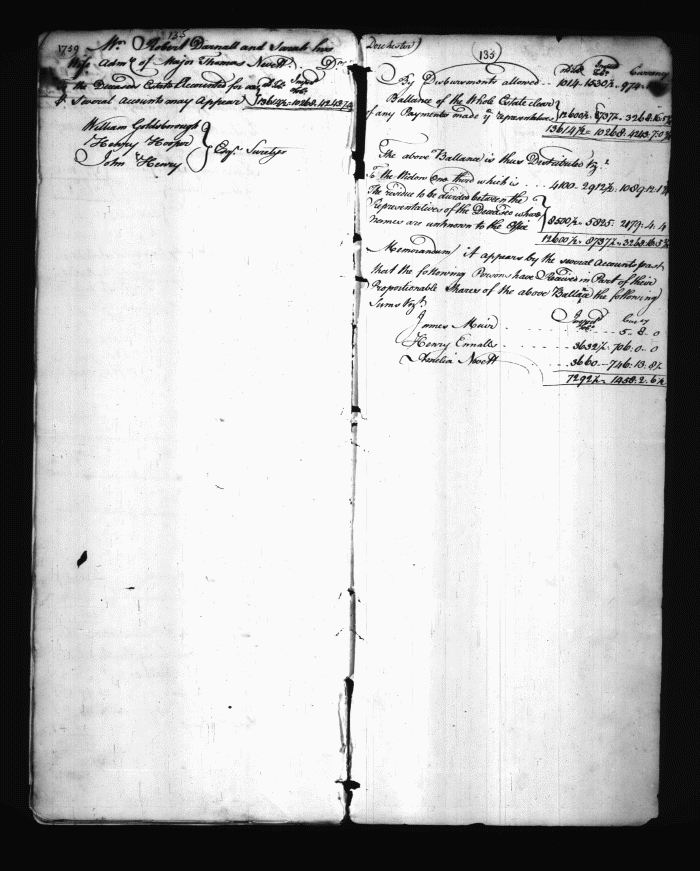 135
1759 Mr. Robert Darnall and Sarah his
Wife Admx of Major Thomas Nevett. Dr.
To the Deceaseds Estate Accounted for as
Several Accounts may Appear 13614½ 10268
William Goldsborough
Henry Hooper
John Henry
Esqs. Suretys
Dorchester)
135
Currency
By Disbursments allowed 1014 1530½ 974
Ballance of the Whole Estate clear
of any Payments made ye representatives 12600½ 8737½ 3268.16.5
13614½ 10268
The above Ballance is thus Distributed Vizt
To the Widow One third which is 4100 2912½ 1089.12.1
The residue to be divided between the
Representatives of the Deceased whose
names are unknown to the Office 8500½ 5825 2179.4.4
12600½ 8737½ 3268.16.5
Memorandum it appears by the several Accounts past
that the following Persons have Received in Part of their
Proportionable Shares of the above Ballace the following
Sums Vizt
James Muir 5.8.0
Henry Ennalls 3632½ 706.0.0
Amelia Nevett 3660 746.13.8½
7292½ 1458.2.6½